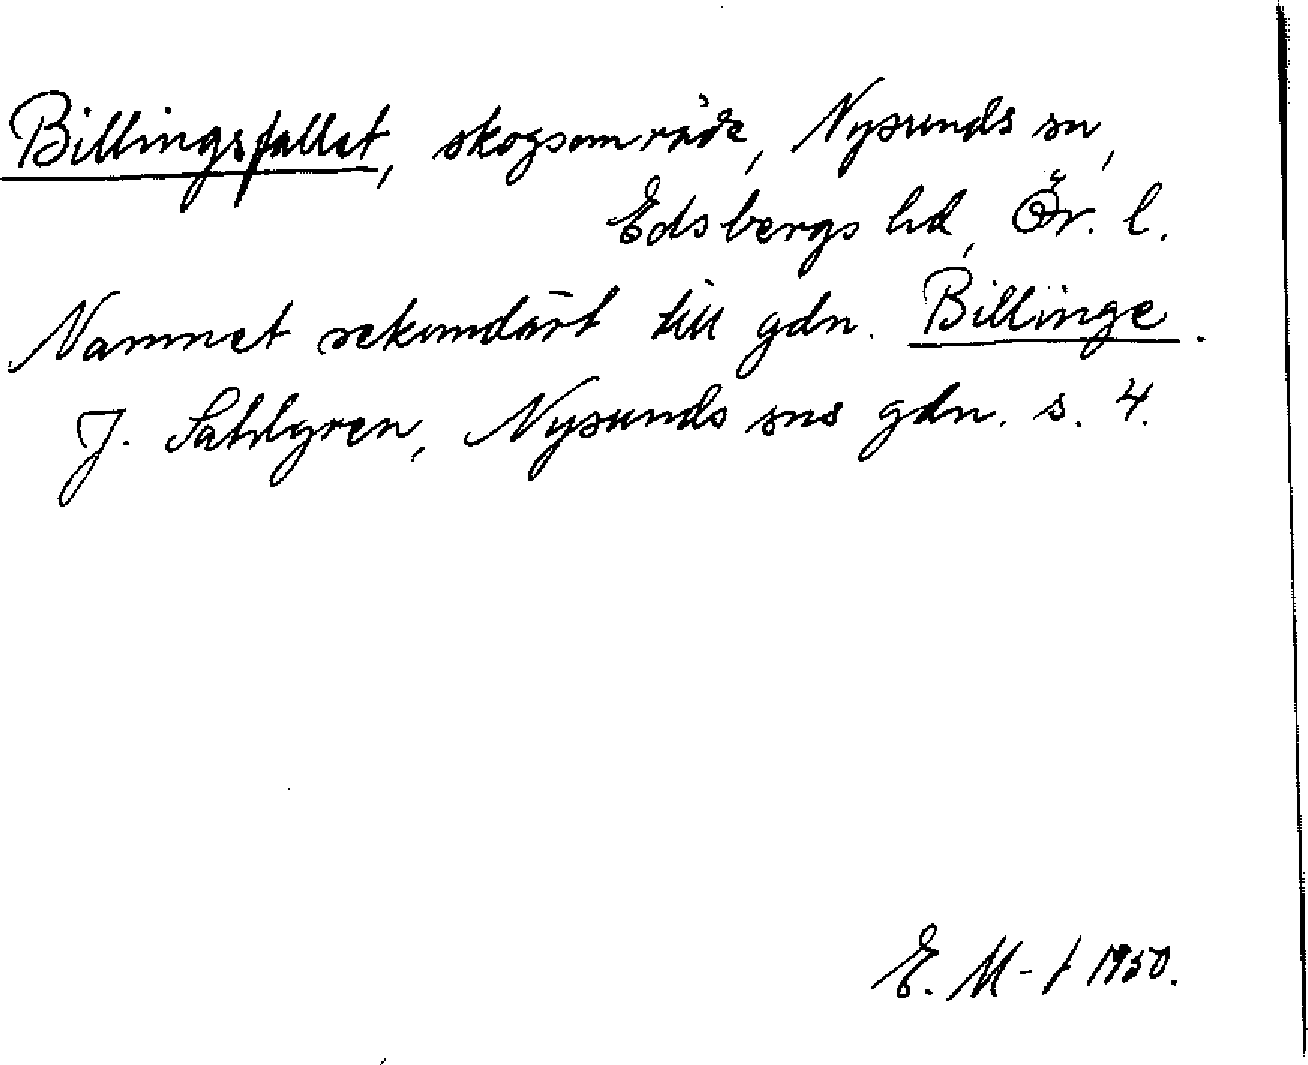 Billingsfallet, skogsområde, Nysunds sn,
Edsbergs hd, Ör. l.
Namnet sekundärt till gdn. Billinge.
J. Sahlgren, Nysunds sns gdn. s. 4.
E. M-t 1950.